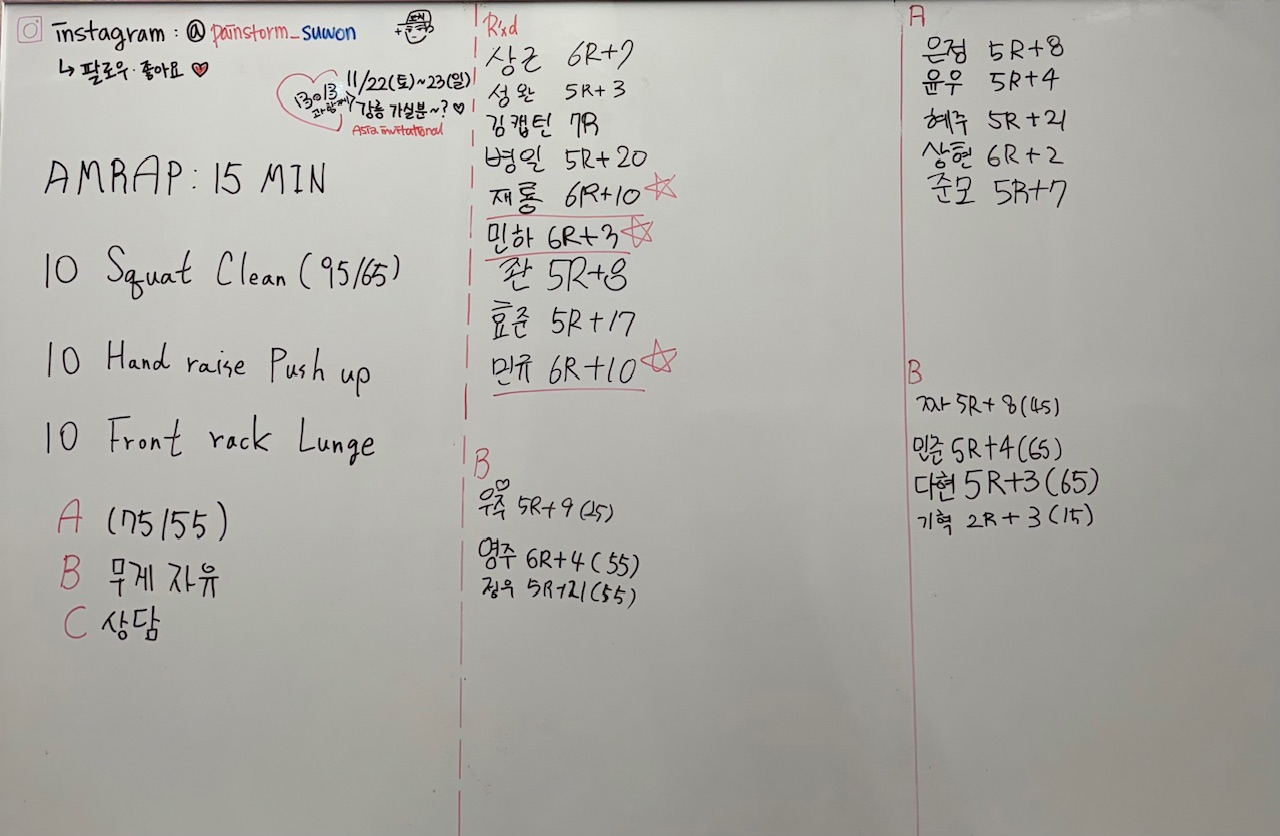 instagram : @painstorm_suwon
↳ 팔로우·좋아요 ♥
11/22(토)~23(일)
강릉 가실분~? ♡
Asia invitational
AMRAP : 15 MIN
10 Squat Clean (95/65)
10 Hand raise Push up
10 Front rack Lunge
A (75/55)
B 무게 자유
C 상담
R'xd
상근 6R+7
성완 5R+3
김캡틴 7R
병일 5R+20
재룡 6R+10 ☆
민하 6R+3 ☆
좐 5R+8
효준 5R+17
민규 6R+10 ☆
B
우주 5R+9 (25)
영주 6R+4 (55)
정우 5R+21 (55)
A
은정 5R+8
윤우 5R+4
혜주 5R+21
상현 6R+2
준모 5R+7
B
5R+8 (45)
민준 5R+4 (65)
다현 5R+3 (65)
기혁 2R+3 (15)